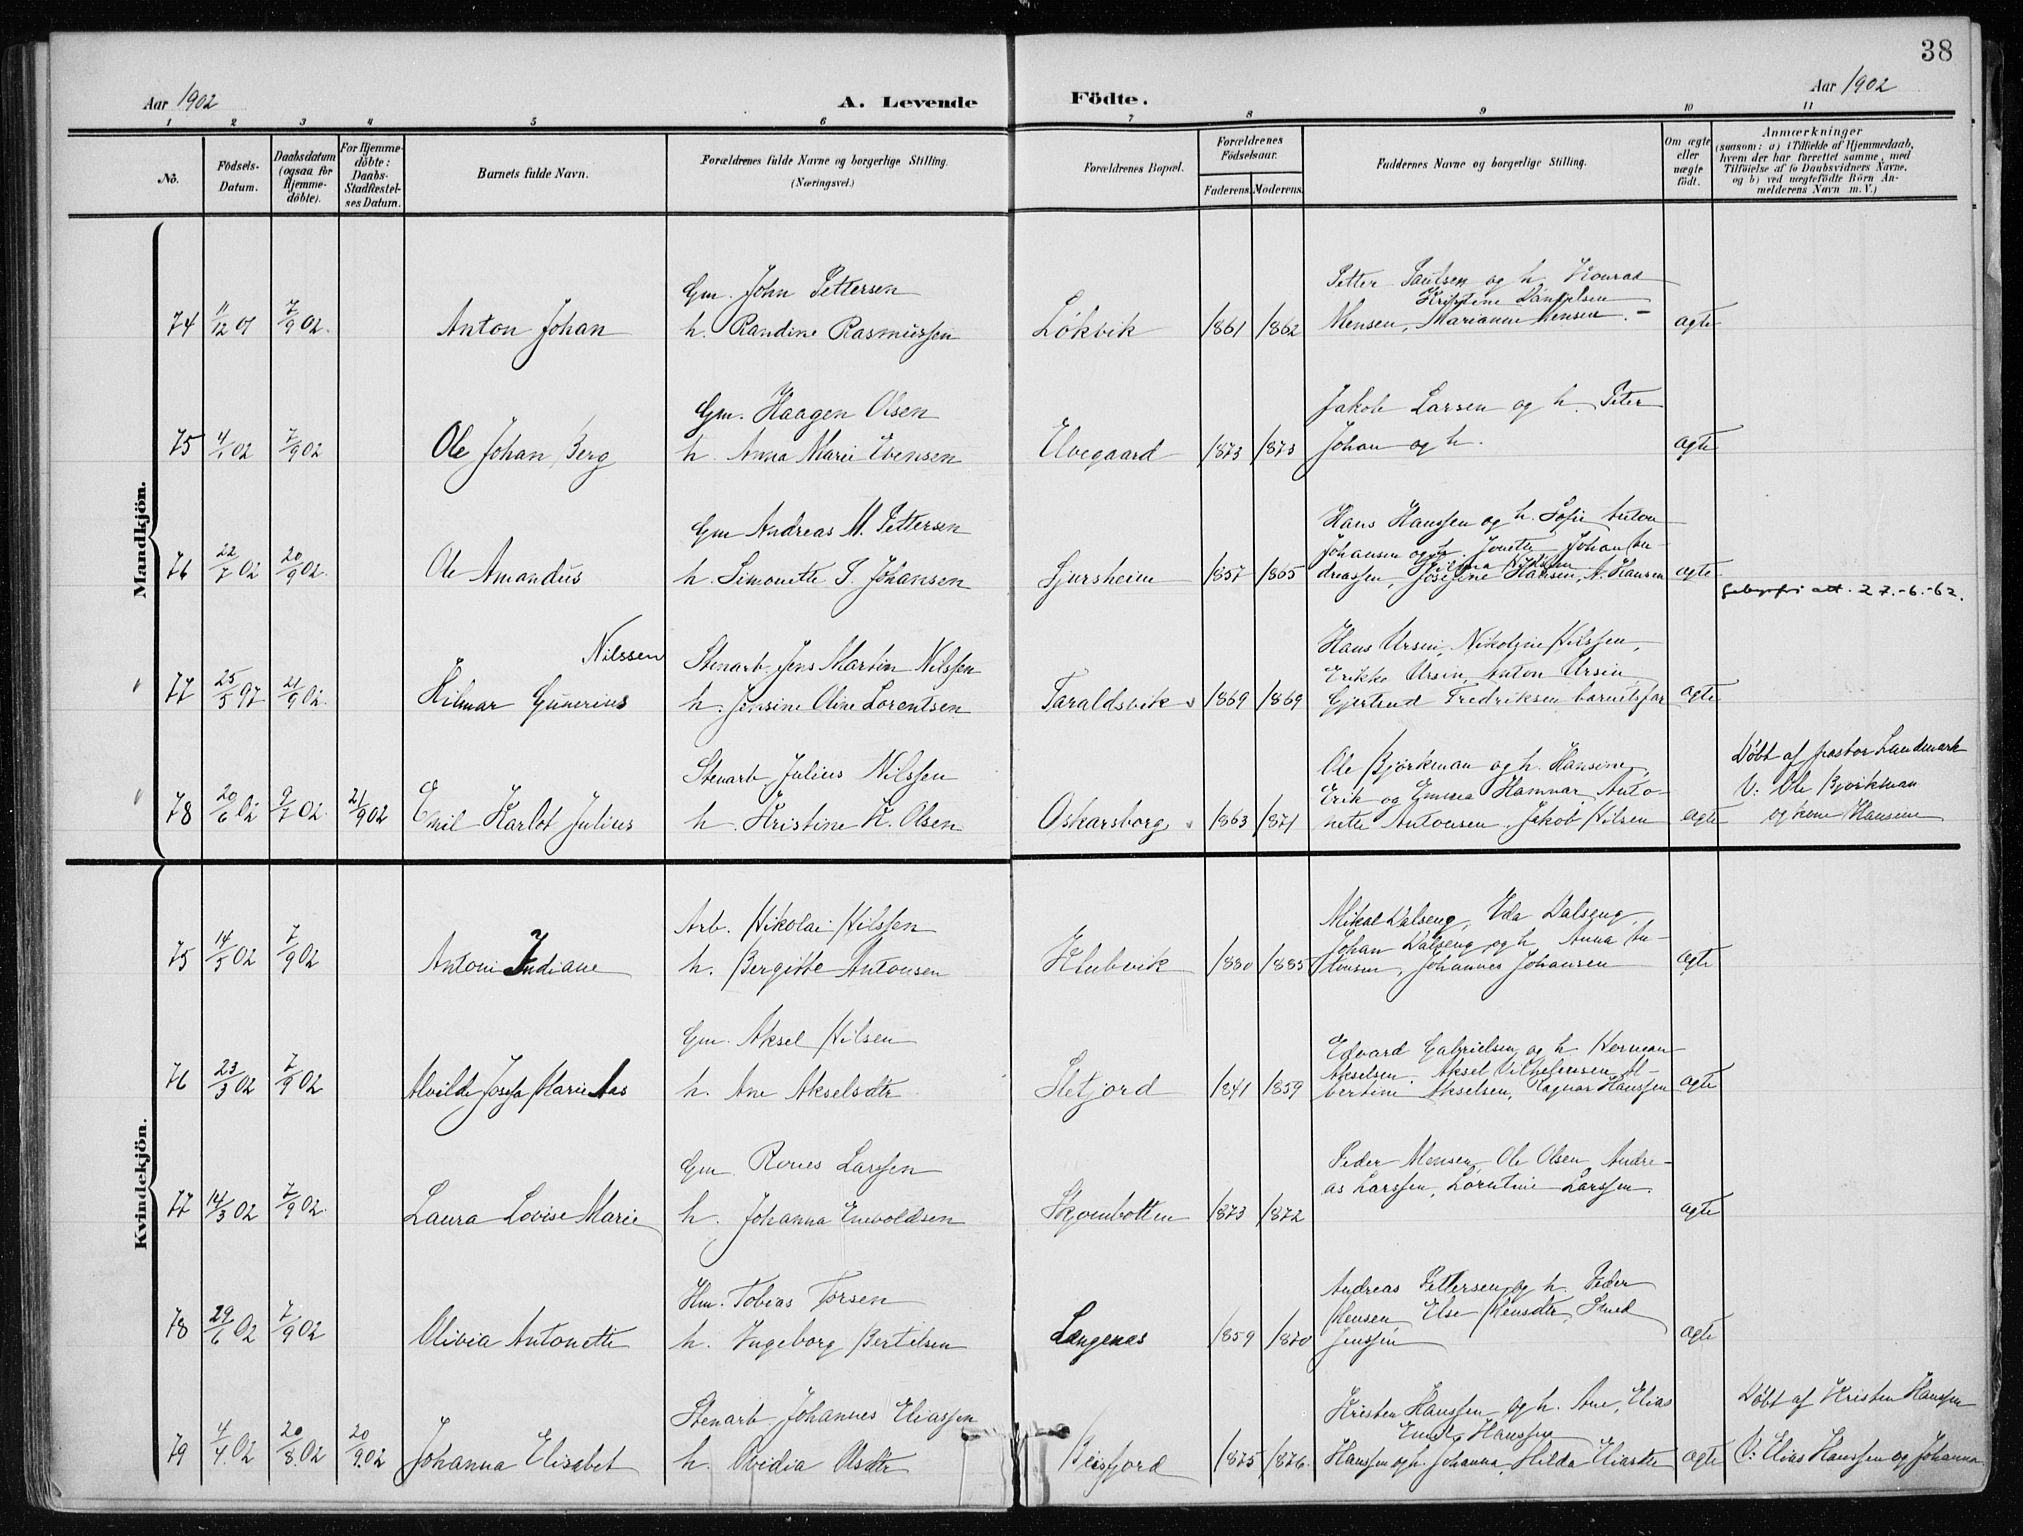 38
Aar 1902
A. Levende
Födte.
Aar 1902
1 2 3 4 5 6 7 8 9 10 11
No.
Födsels-
Datum.
Daabsdatum
(ogsaa for
Hjemme-
döbte).
For Hjemme-
döbte:
Daabs-
Stadfæstel-
ses Datum.
Barnets fulde Navn.
Forældrenes fulde Navne og borgerlige Stilling.
(Næringsvei.)
Forældrenes Bopæl.
Forældrenes
Födselsaar.
Faderens. Moderens.
Faddernes Navne og borgerlige Stilling.
Om ægte
eller
uægte
födt.
Anmærkninger
(saasom: a) i Tilfælde af Hjemmedaab,
hvem der har forrettet samme, med
Tilföielse af to Daabsvidners Navne,
og b) ved uægtefödte Börn An-
melderens Navn m. V.)
Mandkjön.
74 11/12 01 7/9 02. Anton Johan
Gm. John Pettersen
h. Randine Rasmussen
Løkvik 1861 1862
Petter Paulsen og h. Konrad
Kristine Danielsen
Mensen, Marianne Mensen. -
ægte
75 4/1 02 7/9 02 Ole Johan Berg
Gm. Haagen Olsen
h. Anna Marie Evensen
Elvegaard 1873 1873
Jakob Larsen og h. Peter
Johan og h.
ægte
76 22/7 02 20/9 02. Ole Amandus
Gm Andreas M. Pettersen
h. Simonette S. Johansen
Sjursheim 1857 1865
Hans Hanssen og h. Sofie Anton
Johansen og h. Jonette Johan An-
dreassen, Josefine Hansen, N. Hansen
ægte
gebyrfri att. 27.-6.-62.
77 25/5 97 21/9 02. Hilmar Gunerius
Nilssen
Stenarb. Jens Martin Nilssen
h. Jensine Oline Lorentsen
Taraldsvik 1869 1869
Hans Ursin, Nikoline Nilssen,
Erikke Ursin, Anton Ursin
Gjertrud Fredriksen barnets far
ægte
78 20/6 02 9/7 02 21/9 02 Emil Karlot Julius
Stenarb. Julius Nilssen
h. Kristine K. Olsen
Oskarsborg 1863 1871
Ole Björkman og h. Hansine,
Erik og Emma Hamnar, Anto-
nette Antonsen, Jakob Nilsen
ægte
Døbt af pastor Landmark
V: Ole Björkman
og kone Hansine
Kvindekjön.
75 14/5 02 7/9 02 Antoni Indiane
Arb. Nikolai Nilssen
h. Bergitte Antonsen
Klubvik 1880 1885
Mikal Dalseng, Eda Dalseng,
Johan Dalseng og h, Anna An-
tonsen, Johannes Johansen
ægte
76 23/3 02 7/9 02 Alvilde Josefa Marie Aas
Gm. Aksel Nilsen
h. Ane Akselsdtr
Stefjord 1841 1859
Edvard Gabrielsen og h Herman
Akselsen, Aksel Vilhelmsen Al-
bertine Akselsen, Ragnar Hanssen
ægte
77 14/3 02 7/9 02. Laura Lovise Marie
Gm Rones Larssen
h. Johanna Enevoldsen
Skjombotten 1873 1872
Peder Monsen, Ole Olsen, Andre-
as Larssen, Lorentine Larssen.
ægte
78 29/6 02 7/9 02 Olivia Antonette
Hm. Tobias Torsen
h. Ingeborg Bertelsen
Langenas 1859 1870
Andreas Pettersen og h. Peder
Mensen, Else Mensdtr,
Jenssen
ægte
79 4/4 02 20/8 02 20/9 02 Johanna Elisabet
Stenarb. Johannes Eliassen
h. Ovidia Olsdtr
Beisfjord 1875 1876.
Kristen Hanssen og h. Ane, Elias
Emil Hanssen
Hanssen og h. Johanna, Hilda Eliasdtr
ægte
Døbt af Kristen Hanssen
V: Elias Hanssen og Johanna